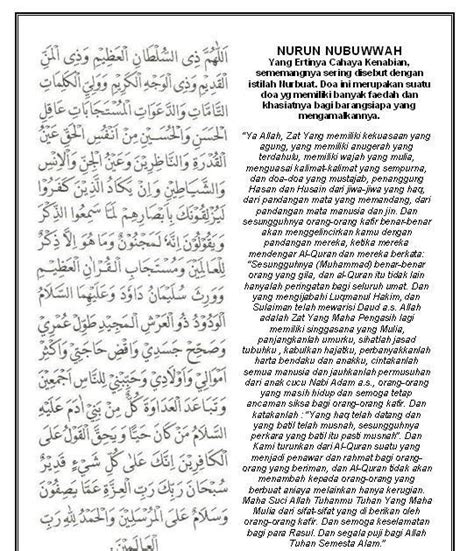 اَللّٰهُمَّ ذِى السُّلْطَانِ الْعَظِيْمِ وَذِى الْمَنِّ
الْقَدِيْمِ وَذِى الْوَجْهِ الْكَرِيْمِ وَوَلِيِّ الْكَلِمَاتِ
التَّامَّاتِ وَالدَّعَوَاتِ الْمُسْتَجَابَاتِ عَاقِلِ
الْحَسَنِ وَالْحُسَيْنِ مِنْ اَنْفُسِ الْحَقِّ عَيْنِ
الْقُدْرَةِ وَالنَّاظِرِيْنَ وَعَيْنِ الْجِنِّ وَالْاِنْسِ
وَالشَّيَاطِيْنِ وَاِنْ يَكَادُ الَّذِيْنَ كَفَرُوْا
لَيُزْلِقُوْنَكَ بِاَبْصَارِهِمْ لَمَّا سَمِعُوا الذِّكْرَ
وَيَقُوْلُوْنَ اِنَّهُ لَمَجْنُوْنٌ وَمَا هُوَ اِلَّا ذِكْرٌ
لِلْعَالَمِيْنَ وَمُسْتَجَابِ الْقُرْاٰنِ الْعَظِيْمِ
وَوَرِثَ سُلَيْمَانُ دَاوُدَ وَعَلَيْهِمَا السَّلَامُ
الْوَدُوْدُ ذُو الْعَرْشِ الْمَجِيْدِ طَوِّلْ عُمْرِيْ
وَصَحِّحْ جَسَدِيْ وَاقْضِ حَاجَتِيْ وَاَكْثِرْ
اَمْوَالِيْ وَاَوْلَادِيْ وَحَبِّبْنِيْ لِلنَّاسِ اَجْمَعِيْنَ
وَتَبَاعَدِ الْعَدَاوَةَ كُلَّ مِنْ بَنِيْ اٰدَمَ عَلَيْهِ
السَّلَامُ مَنْ كَانَ حَيًّا وَيَحِقَّ الْقَوْلُ عَلَى
الْكَافِرِيْنَ اِنَّكَ عَلَى كُلِّ شَيْءٍ قَدِيْرٌ
سُبْحَانَ رَبِّكَ رَبِّ الْعِزَّةِ عَمَّا يَصِفُوْنَ
وَسَلَامٌ عَلَى الْمُرْسَلِيْنَ وَالْحَمْدُ لِلّٰهِ رَبِّ
الْعَالَمِيْنَ.
NURUN NUBUWWAH
Yang Ertinya Cahaya Kenabian,
sememangnya sering disebut dengan
istilah Nurbuat. Doa ini merupakan suatu
doa yg memiliki banyak faedah dan
khasiatnya bagi barangsiapa yang
mengamalkannya.
"Ya Allah, Zat Yang memiliki kekuasaan yang
agung, yang memiliki anugerah yang
terdahulu, memiliki wajah yang mulia,
menguasai kalimat-kalimat yang sempurna,
dan doa-doa yang mustajab, penanggung
Hasan dan Husain dari jiwa-jiwa yang haq,
dari pandangan mata yang memandang, dari
pandangan mata manusia dan jin. Dan
sesungguhnya orang-orang kafir benar-benar
akan menggelincirkan kamu dengan
pandangan mereka, ketika mereka
mendengar Al-Quran dan mereka berkata:
"Sesungguhnya (Muhammad) benar-benar
orang yang gila, dan al-Quran itu tidak lain
hanyalah peringatan bagi seluruh umat. Dan
yang mengijabahi Luqmanul Hakim, dan
Sulaiman telah mewarisi Daud a.s. Allah
adalah Zat Yang Maha Pengasih lagi
memiliki singgasana yang Mulia,
panjangkanlah umurku, sihatlah jasad
tubuhku , kabulkan hajatku, perbanyakkanlah
harta bendaku dan anakku, cintakanlah
semua manusia dan jauhkanlah permusuhan
dari anak cucu Nabi Adam a.s., orang-orang
yang masih hidup dan semoga tetap
ancaman siksa bagi orang-orang kafir. Dan
katakanlah : "Yang haq telah datang dan
yang batil telah musnah, sesungguhnya
perkara yang batil itu pasti musnah". Dan
Kami turunkan dari Al-Quran suatu yang
menjadi penawar dan rahmat bagi orang-
orang yang beriman, dan Al-Quran tidak akan
menambah kepada orang-orang yang
berbuat aniaya melainkan hanya kerugian.
Maha Suci Allah Tuhanmu Tuhan Yang Maha
Mulia dari sifat-sifat yang di berikan oleh
orang-orang kafir. Dan semoga keselamatan
bagi para Rasul. Dan segala puji bagi Allah
Tuhan Semesta Alam."